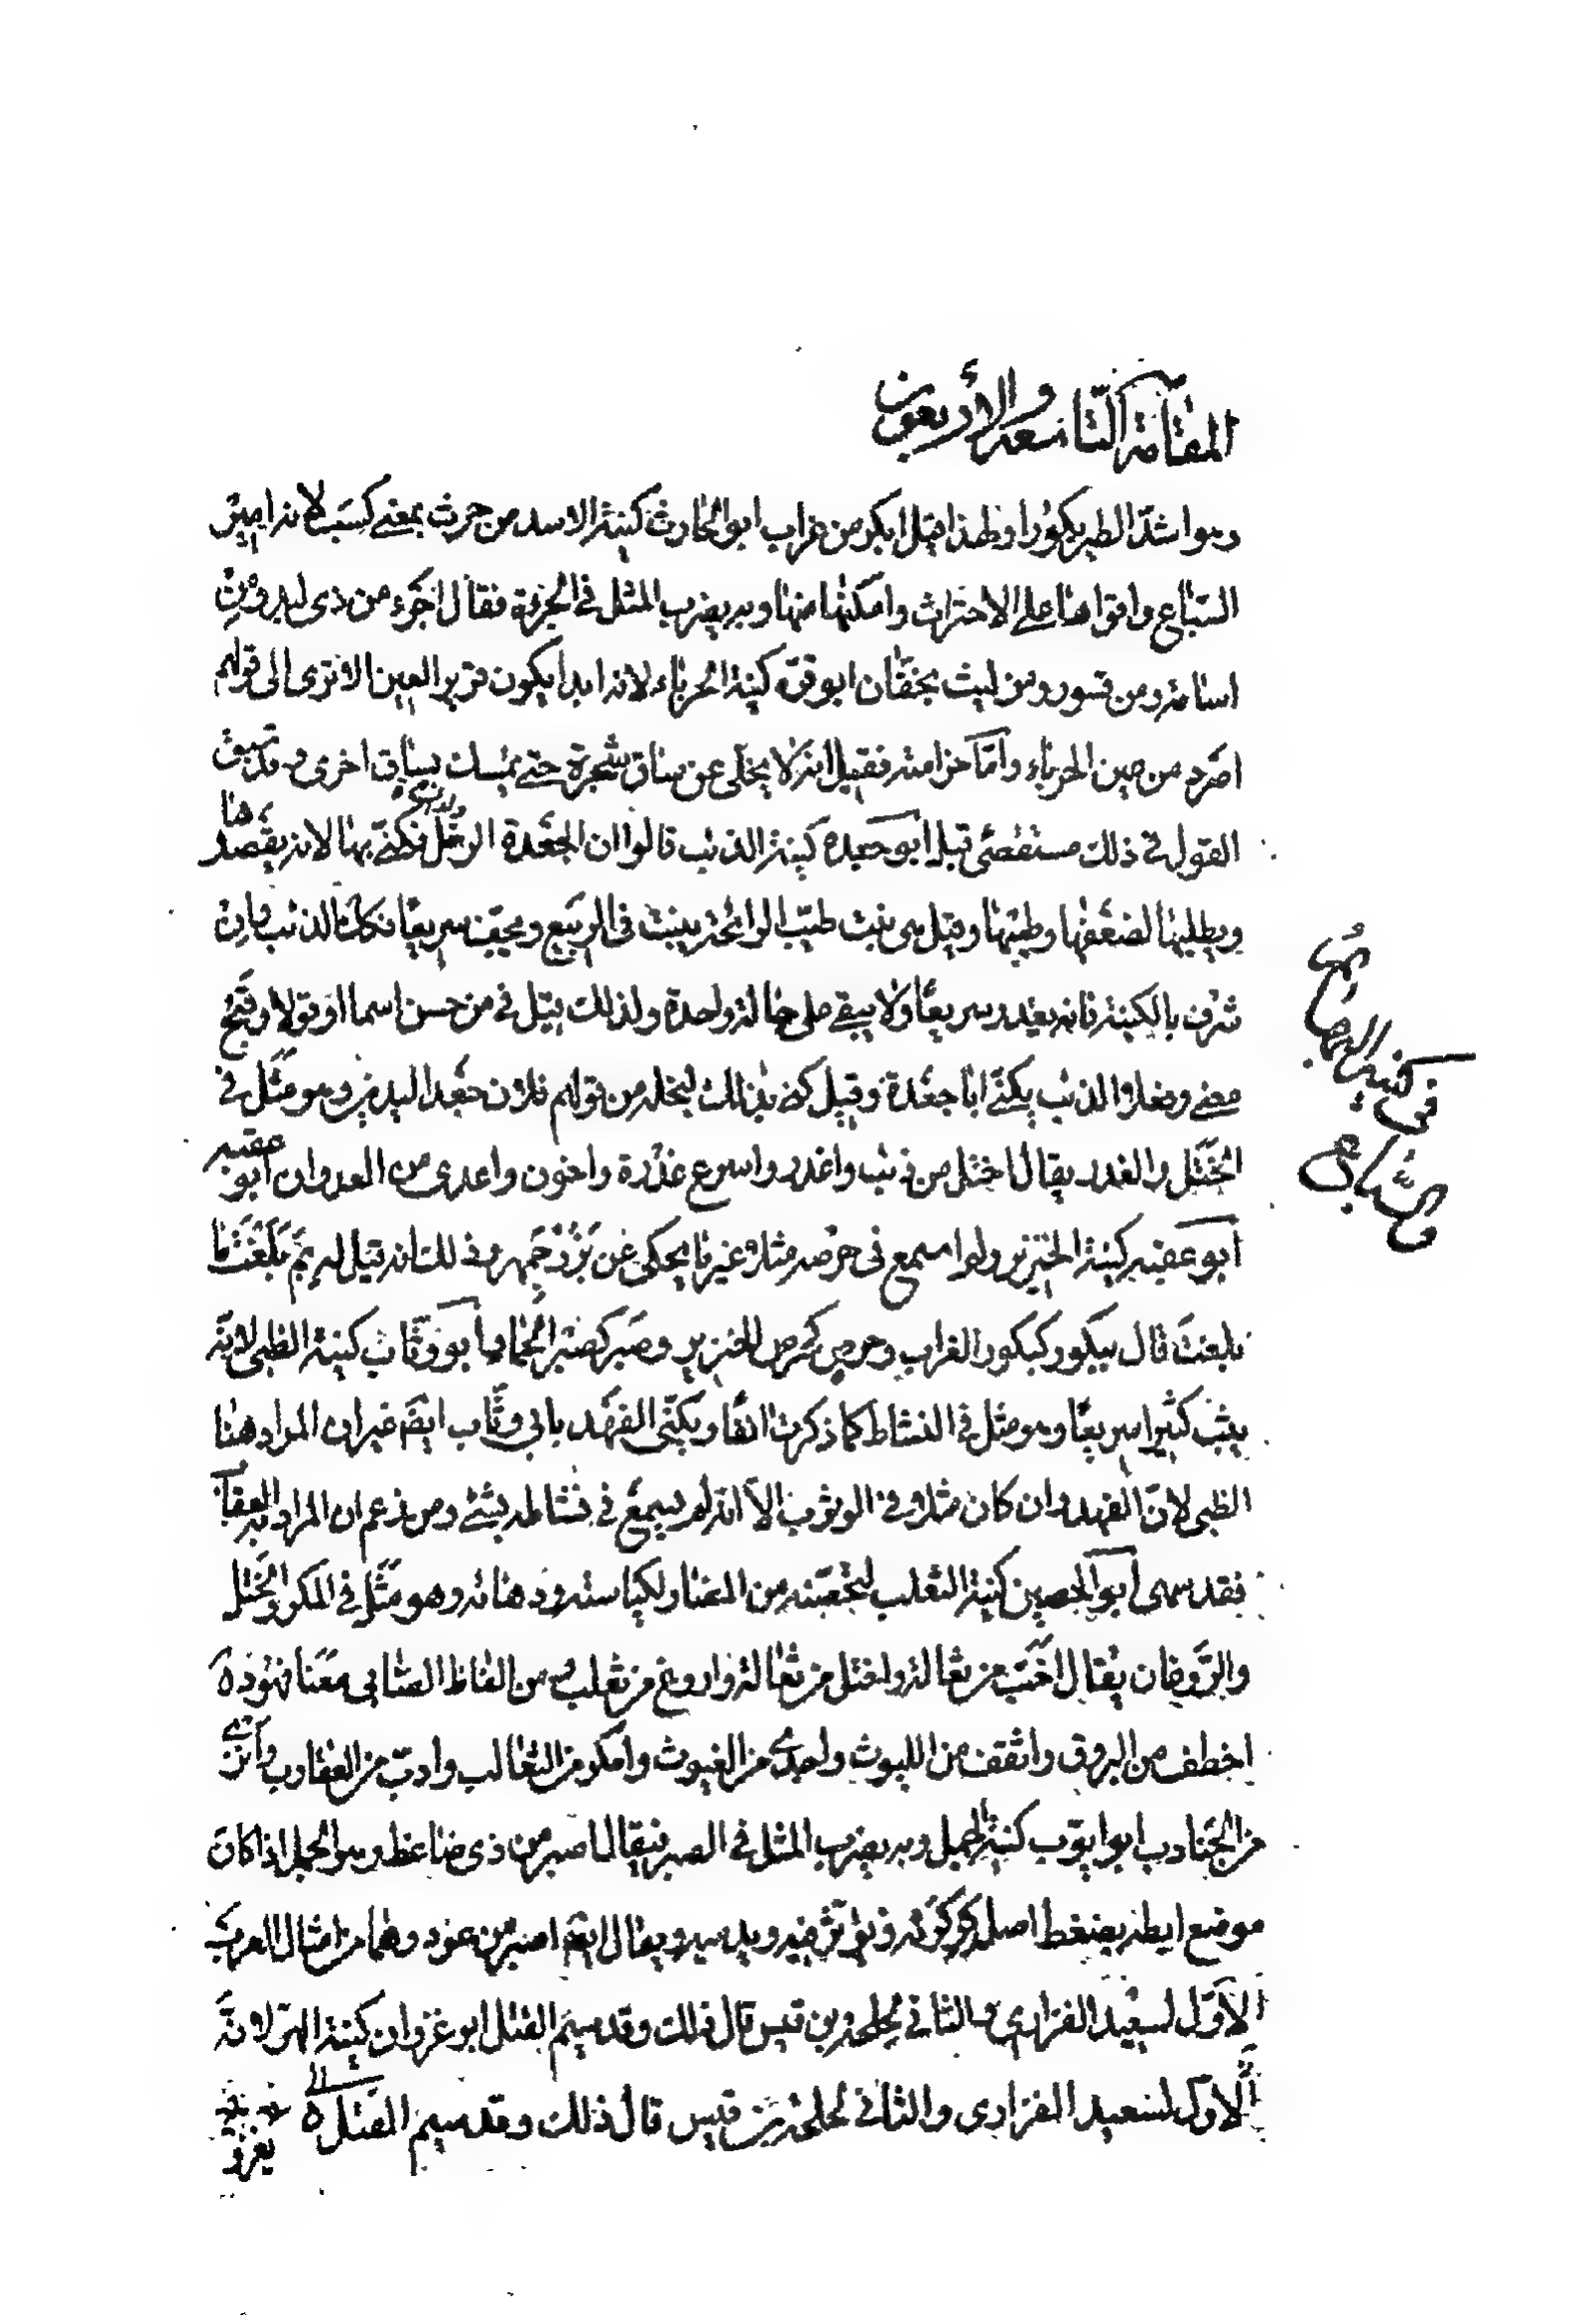 المقامة التاسعة والأربعون
وهو اشدّ الطير بكورا ولهذا قيل ابكر من غراب ابو الحارث كنية الاسد من حرث بمعنى كسب لانه امير
السّباع واقواها على الاحتراث وامكنها منها وبه يضرب المثل في الجرءة فقال اجرء من ذى لبد ومن
اسامة ومن قسور ومن ليث بخفّان ابو قرّة كنية الحرباء لانه ابدا يكون قرير العين الا ترى الى قولهم
اصرد من عين الحرباء وامّا حزامته فقيل انه لا يخلى عن ساق شجرة حتى يمسك بساق اخرى وقد سبق
القول في ذلك مستقصى قبل ابو جعدة كنية الذئب قالوا ان الجعدة الرخل فكنّى بها لانه يقصدها
ويطلبها لضعفها وطيبها وقيل هى نبت طيّب الرائحة ينبت فى الربيع ويجفّ سريعًا فكان الذئب وان
شرف بالكنية فانه يغدر سريعًا ولا يبقى على حالة واحدة ولذلك قيل فى من حسن اسما او قولا وقبح
معنى وفعلا الذئب يكنّى ابا جعدة وقيل كنى بذلك لبخله من قولهم فلان جعد اليدين وهو مثل في
الختل والغدر يقال اختل من ذئب واغدر واسرع غدرة واخون واعدى من العدوان ابو عقبه
ابو عقبه كنية الخنزير ولو اسمع فى حرصه مثلا غير ما يحكى عن بزرجمهر وذلك انه قيل له بم بلغت ما
بلغت قال ببكور كبكور الغراب وحرص كحرص الخنزير وصبر كصبر الحمار ابو وثّاب كنية الظبى لانّه
يثب كثيرا سريعًا وهو مثل في النشاط كما ذكرت انفًا ويكنّى الفهد بابي وثّاب ايضًا غير ان المراد هنا
الظبى لانّ الفهد وان كان مثلا فى الوثوب الّا انه لم يسمع في نشاطه بشئ ومن زعم ان المراد به العقاب
فقد سهى ابو الحصين كنية الثعلب لتحصّنه من العنا ولكياسته ودهائه وهو مثل في المكر والختل
والروغان يقال اخبّ من ثعالة واختل من ثعالة واروغ من ثعلب ومن الفاظ الصّابى معنا فهوده
اخطف من البروق واثقف من الليوث واجدى من الغيوث وامكر من الثعالب وادبّ من العقارب وانزى
من الجنادب ابو ايّوب كنية الجمل وبه يضرب المثل في الصبر فيقال اصبر من ذى ضاغط وهو الجمل اذا كان
موضع ابطه يضغط اصل كركرته فيؤثّر فيه ويدميه ويقال ايضا اصبر من عود وهما من امثال العرب
الاوّل لسعيد الفزارى والثانى لحلحلة بن قيس قال ذلك وقد سيم القتل ابو غزوان كنية الهرّ لانّه
الاوّل لسعيد الفزارى والثانى لحلحلة بن قيس قال ذلك وقد سيم القتل
يغزو
في كنية البهائم
والسّباع